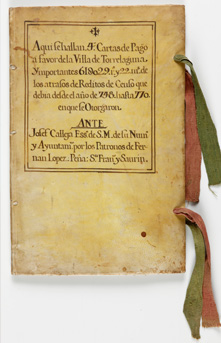 Aqui se hallan 4. Cartas de Pago
a favor de la Villa de Torrelaguna.
Y importantes 61802
los atrasos de Reditos de Censo que
debia desde el año de 748. hasta 770.
en que se Otorgaron.
ANTE
Josef Callega Ess.º de S. M. de su Num.º
y Ayuntam.to por los Patronos de Fer-
nan Lopez. Peña: S.n Fran.co y